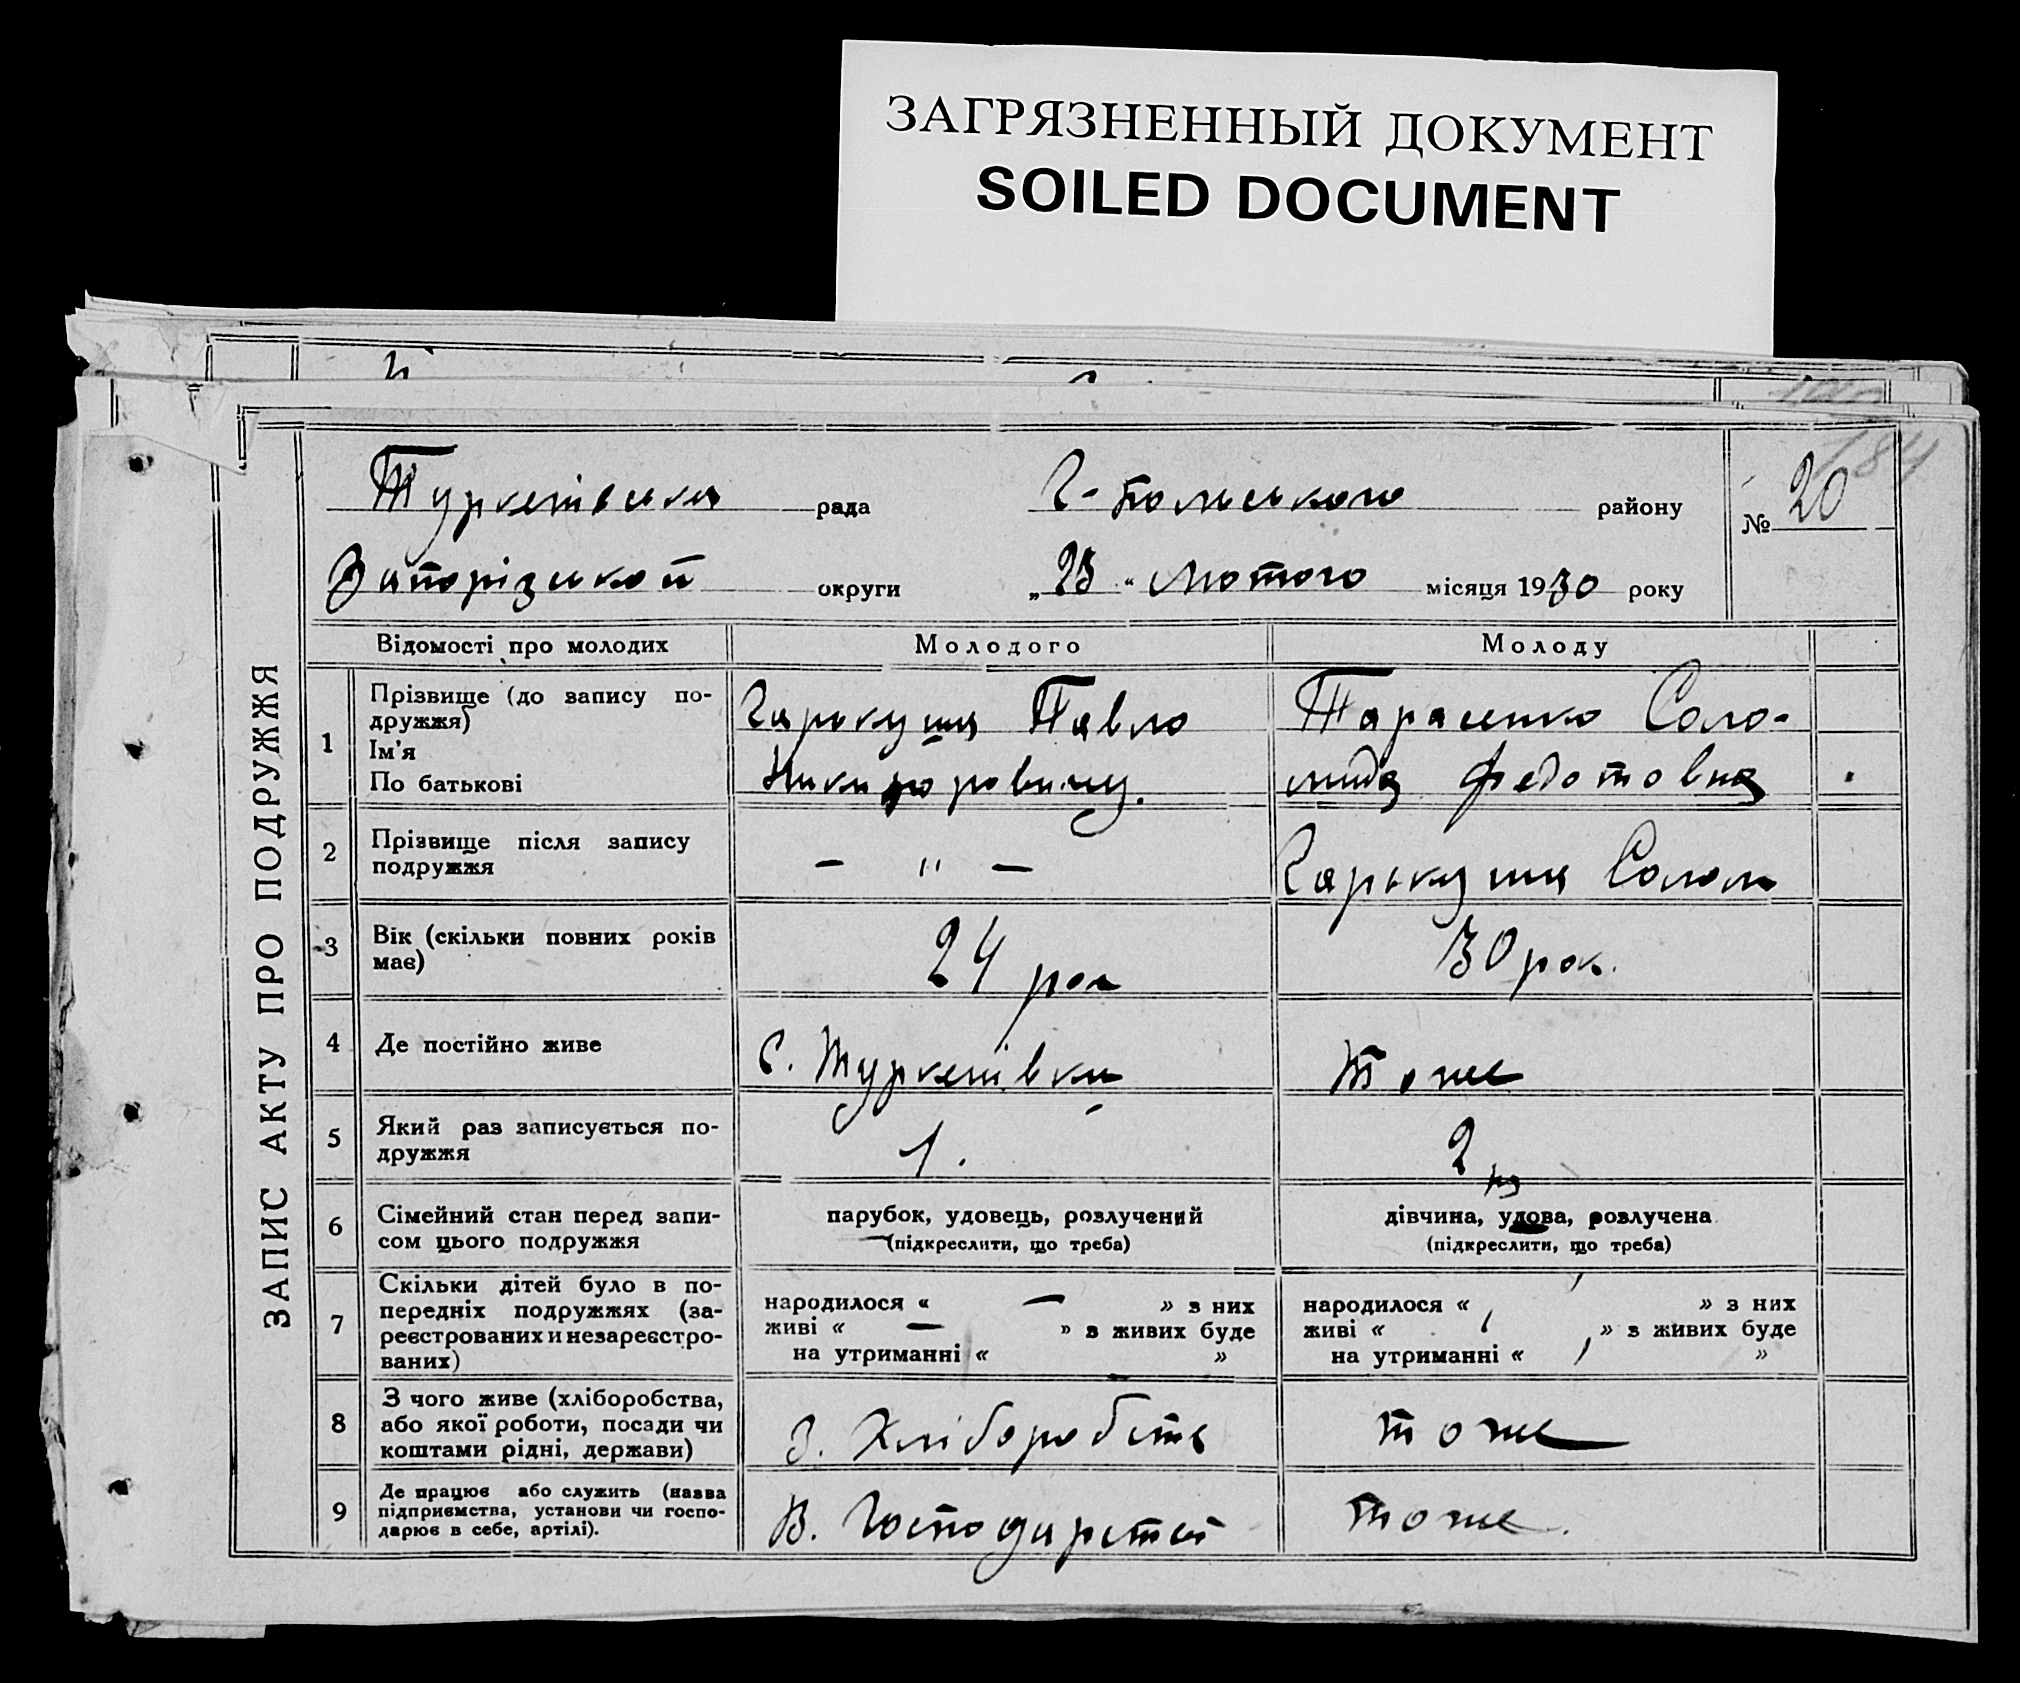 ЗАГРЯЗНЕННЫЙ ДОКУМЕНТ
SOILED DOCUMENT
184
ЗАПИС АКТУ ПРО ПОДРУЖЖЯ
Туркенівська рада Г-Польського району № 20
Запорізькой округи „23“ Лютого місяця 1930 року
Відомості про молодих Молодого Молоду
1 Прізвище (до запису по-
дружжя)
Ім'я
По батькові
Гаркуша Павло
Никифоровичу.
Тарасенко Соло-
мида Федотовна
2 Прізвище після запису
подружжя
— " —
Гарькуша Солом
3 Вік (скільки повних років
має)
24 рок
30 рок.
4 Де постійно живе
С. Туркенівки
тоже
5 Який раз записується по-
дружжя
1.
2
6 Сімейний стан перед запи-
сом цього подружжя
парубок, удовець, розлучений
(підкреслити, що треба)
дівчина, удова, розлучена
(підкреслити, що треба)
7 Скільки дітей було в по-
передніх подружжях (за-
реєстрованих и незареєстро-
ваних)
народилося « — » з них
живі « — » з живих буде
на утриманні « »
народилося « » з них
живі « » з живих буде
на утриманні « »
8 З чого живе (хліборобства,
або якої роботи, посади чи
коштами рідні, держави)
З. Хліборобств
тоже
9 Де працює або служить (назва
підприємства, установи чи госпо-
дарює в себе, артілі).
В. Господарстві
тоже.